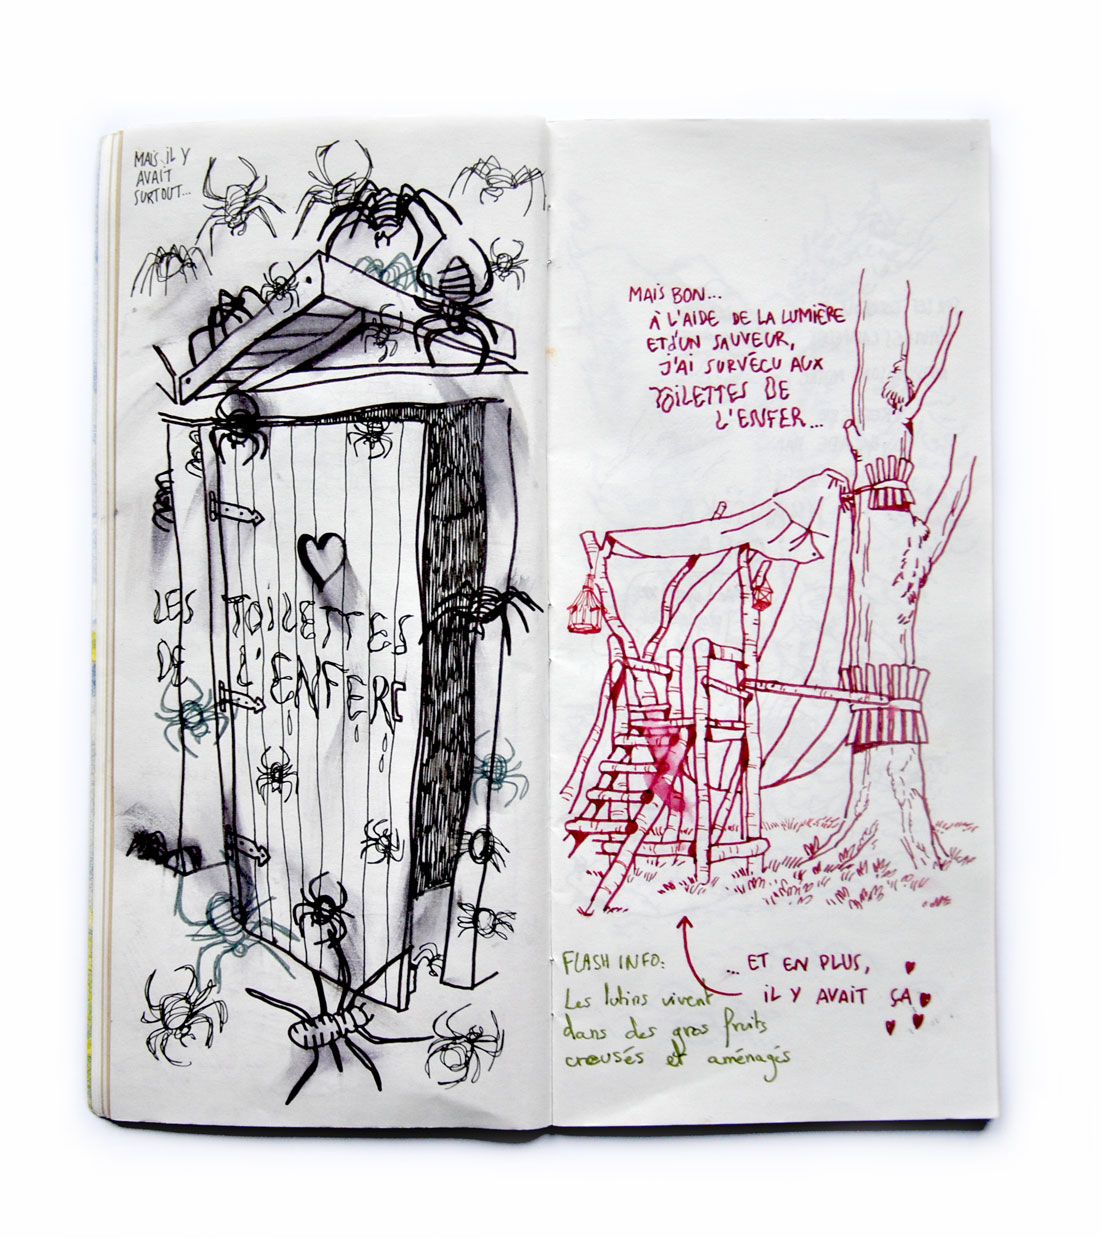 MAIS IL Y
AVAIT
SURTOUT...
LES TOILETTES
DE L'ENFER
MAIS BON...
À L'AIDE DE LA LUMIÈRE
ET D'UN SAUVEUR,
J'AI SURVÉCU AUX
TOILETTES DE
L'ENFER...
FLASH INFO:
Les lutins vivent
dans des gros fruits
creusés et aménagés
... ET EN PLUS,
IL Y AVAIT ÇA